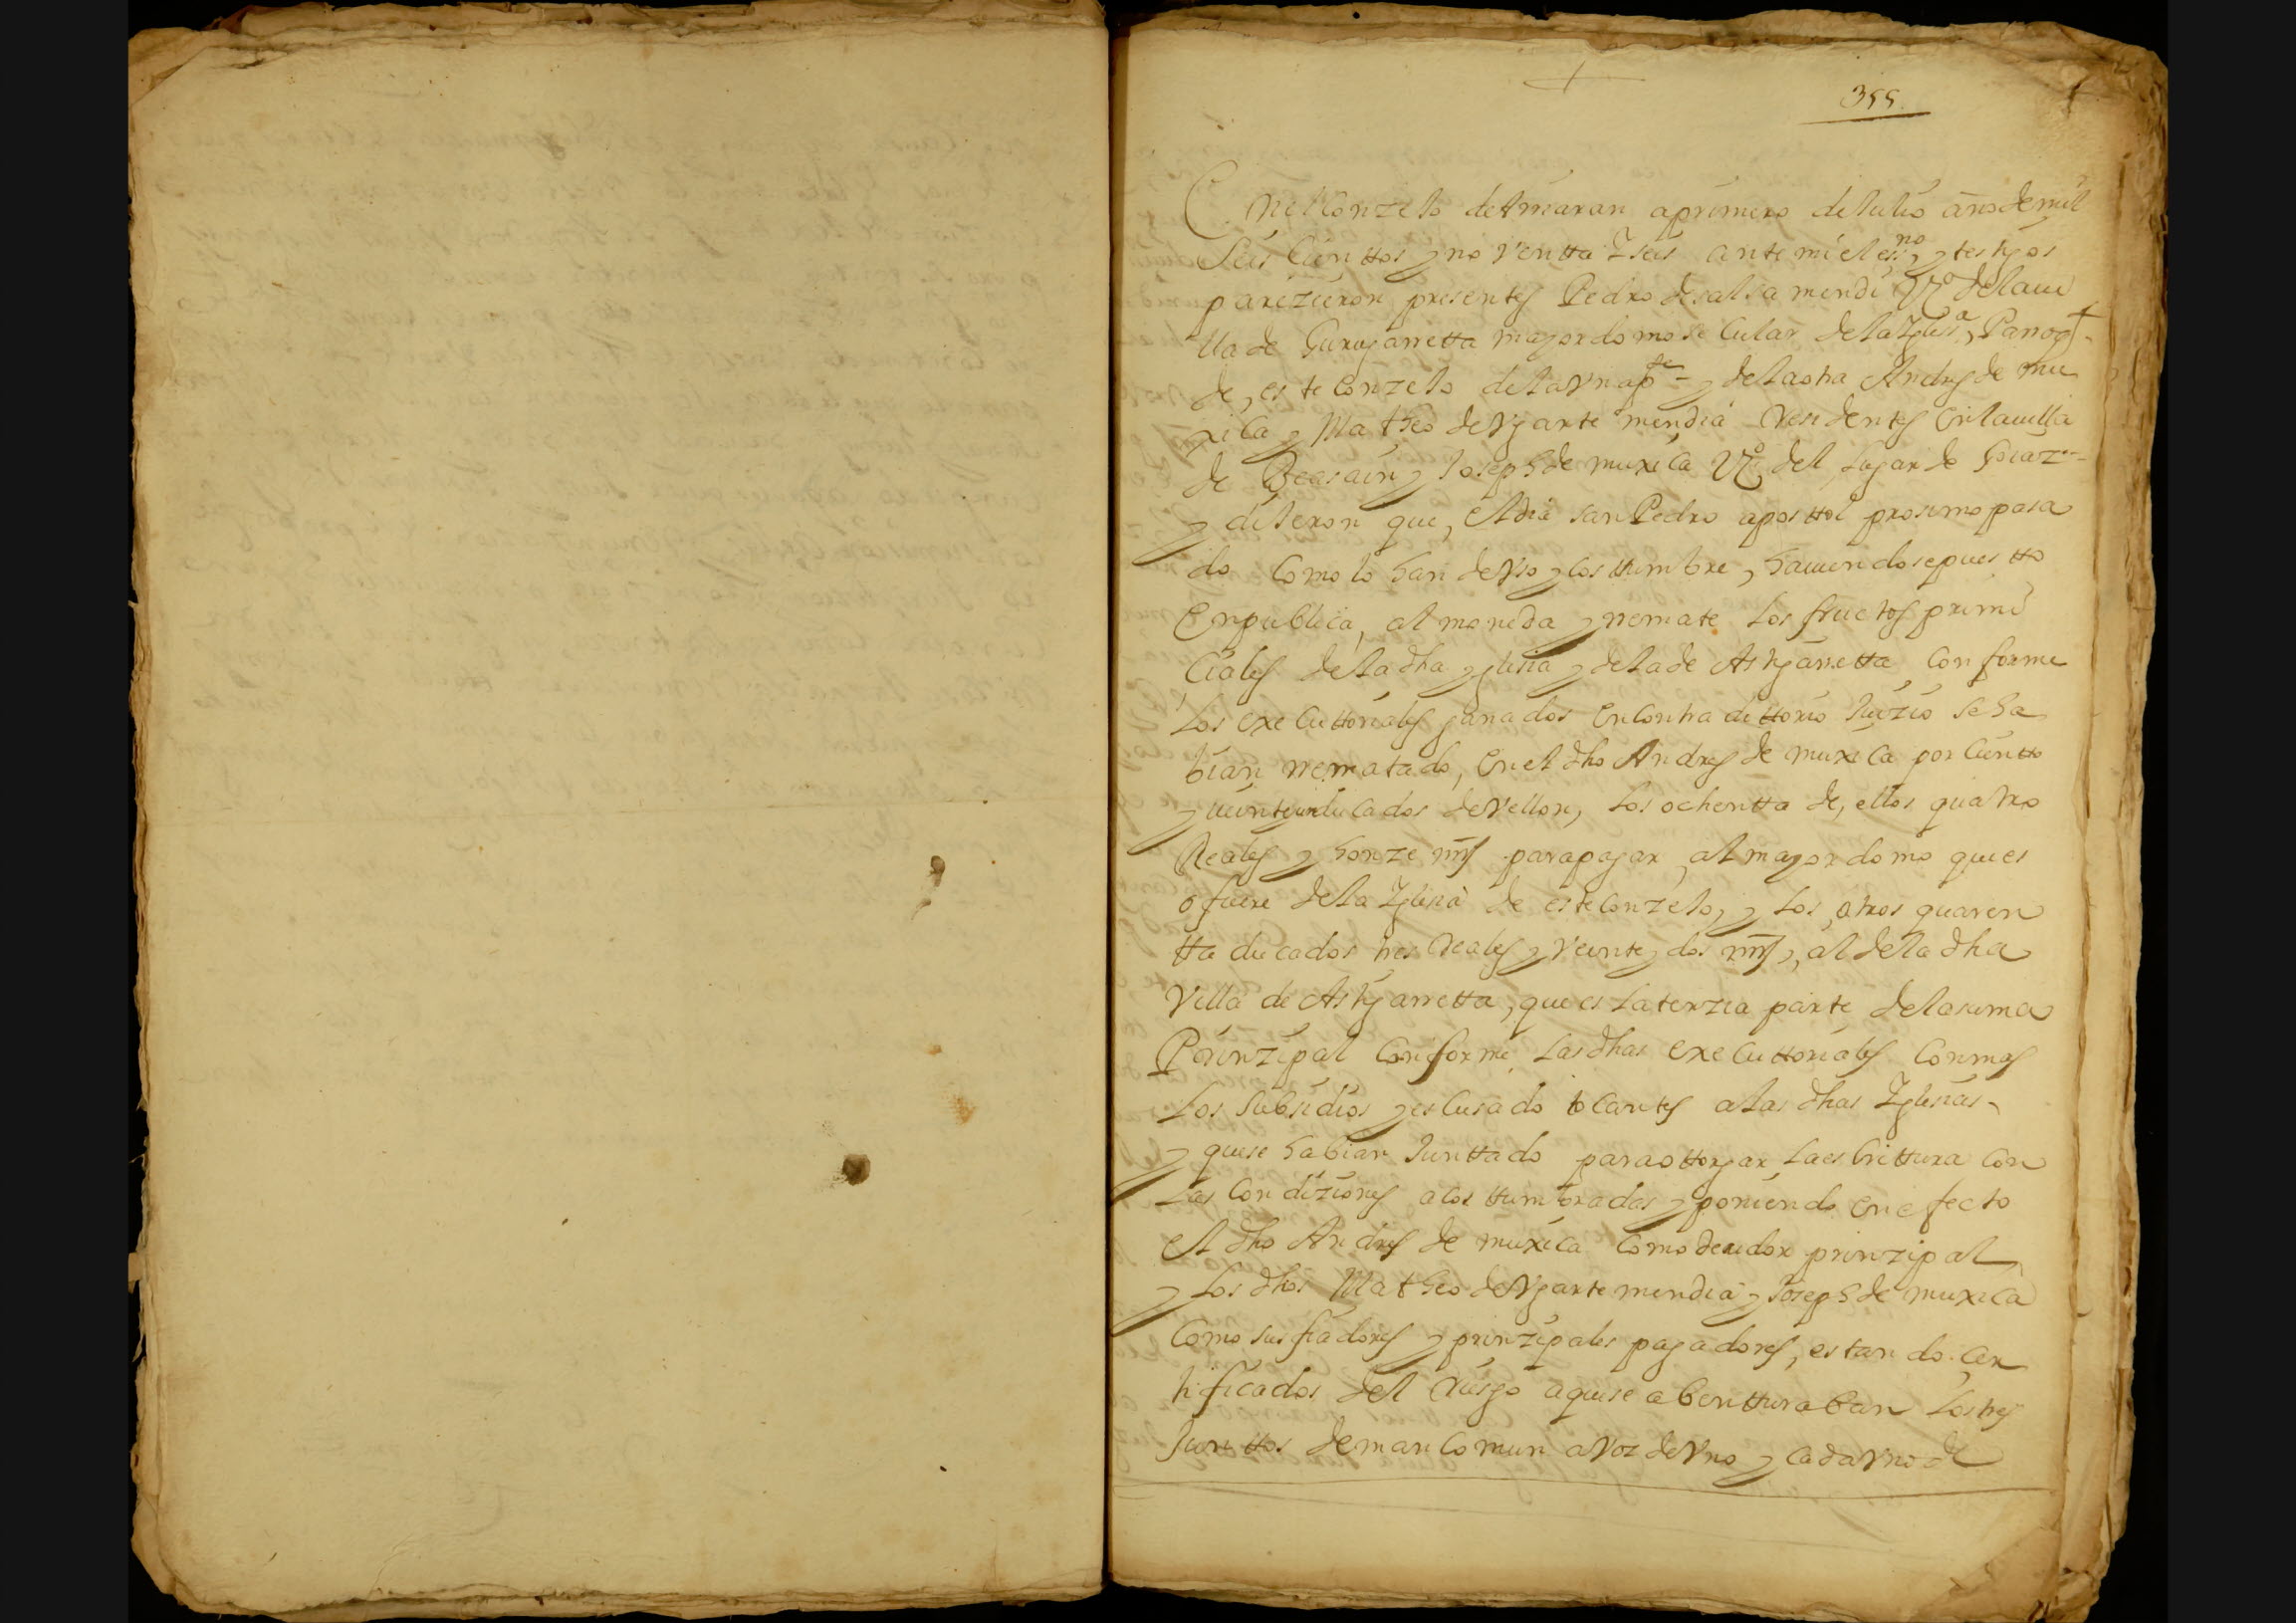 355
En el Conzejo de Amaran a primero de Julio año de mil
Seis Cienttos y noventta y seis ante mi el essno y testigos
parezieron presentes Pedro de salsamendi Vº de la vi
lla de Gudugarretta mayordomo secular de la Iglesia Parroql
de este Conzejo de la vna pte y de la otra Andres de mu
xica y Matheo de Vgartemendia Residentes en la villa
de Beasain y Joseph de muxica Vº del Lugar de Goiaz
y dijeron que el dia san Pedro aposttol proximo pasa
do como lo han de vso y costtumbre, haviendose puestto
En publica almoneda y rremate Los fructos primi
Ciales de la dha yglesia y de la de Astigarretta conforme
Los executtoriales ganados en contradittorio Juizio se ha
bian rrematado, en el dho Andres de muxica por Cientto
y veinte ducados de vellon, Los ochentta de ellos quatro
Reales y honze mrs para pagar al mayordomo que es
o fuere de la Iglesia de este conzejo, y Los otros quaren
tta ducados tres Reales y veinte y dos mrs, al de la dha
Villa de Astigarretta, que es la terzia parte de la suma
Prinzipal Conforme Las dhas executtoriales Con mas
Los subsidios y escusado tocantes a las dhas Iglesias
y que se habian Junttado para ottorgar La escrittura con
Las Condiziones acosttumbradas y poniendo en efecto
el dho Andres de muxica Como deudor prinzipal
y Los dhos Matheo de Vgartemendia y Joseph de muxica
Como sus fiadores y prinzipales pagadores, estando Cer
tificados del Riesgo a que se abentturaban Los tres
Junttos de mancomun a voz de vno y cada vno de